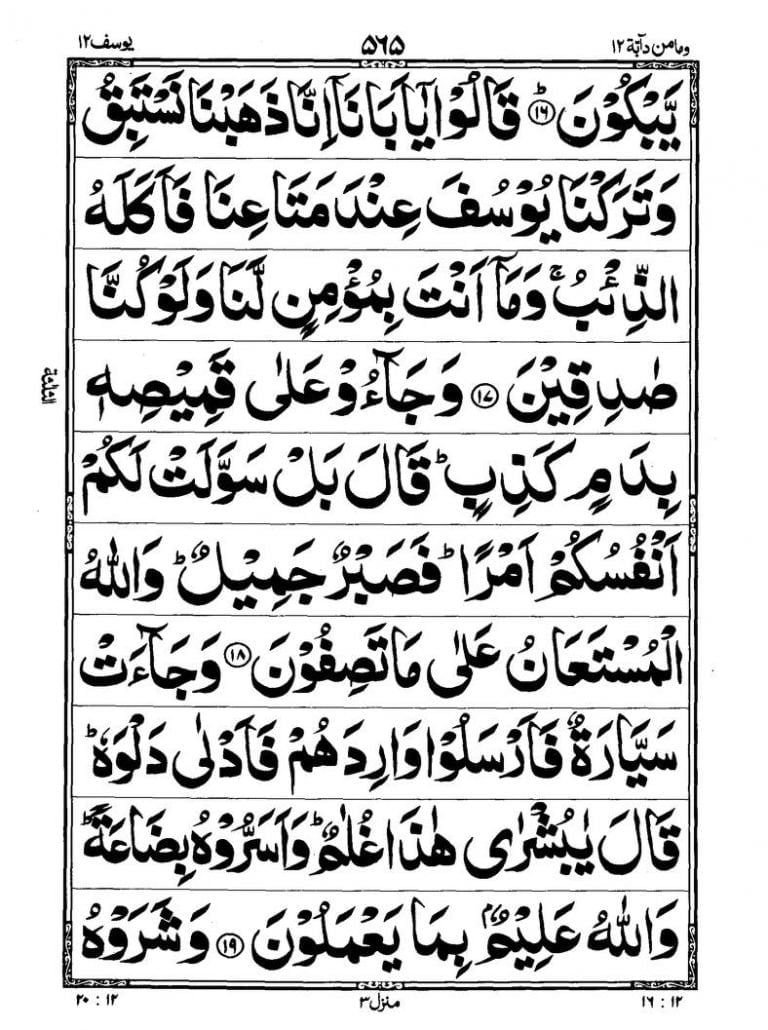 وما من دآبة ١٢ ۵۶۵ یوسف ١٢
یَّبْکُوْنَ ؕ ⑯ قَالُوْا یٰۤاَبَانَاۤ اِنَّا ذَهَبْنَا نَسْتَبِقُ
وَتَرَکْنَا یُوْسُفَ عِنْدَ مَتَاعِنَا فَاَکَلَهُ
الذِّئْبُ ۚ وَمَاۤ اَنْتَ بِمُؤْمِنٍ لَّنَا وَلَوْ کُنَّا
صٰدِقِیْنَ ⑰ وَجَآءُوْ عَلٰی قَمِیْصِهٖ
بِدَمٍ کَذِبٍ ؕ قَالَ بَلْ سَوَّلَتْ لَکُمْ
اَنْفُسُکُمْ اَمْرًا ؕ فَصَبْرٌ جَمِیْلٌ ؕ وَاللّٰهُ
الْمُسْتَعَانُ عَلٰی مَا تَصِفُوْنَ ⑱ وَجَآءَتْ
سَیَّارَةٌ فَاَرْسَلُوْا وَارِدَهُمْ فَاَدْلٰی دَلْوَهٗ ؕ
قَالَ یٰبُشْرٰی هٰذَا غُلٰمٌ ؕ وَاَسَرُّوْهُ بِضَاعَةً ؕ
وَاللّٰهُ عَلِیْمٌۢ بِمَا یَعْمَلُوْنَ ⑲ وَشَرَوْهُ
الثلٰثة
١٦ : ١٢ منزل ٣ ٢٠ : ١٢